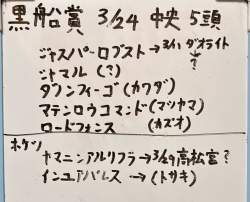 黒船賞 3/24 中央 5頭
ジャスパーロブスト→3/17 ダイオライト?
ジャマル (?)
タウンフィーゴ (カワダ)
マテンロウコマンド (マツヤマ)
ロードフォンス (カズオ)
ホケツ
ヤマニンアルリフラ→3/29高松宮?
インユアパレス→(トサキ)